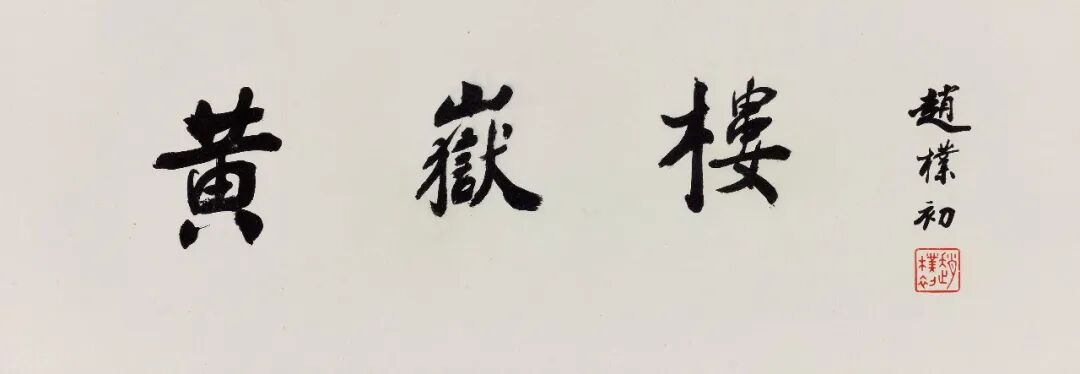 黄嶽樓
趙樸初
趙樸初